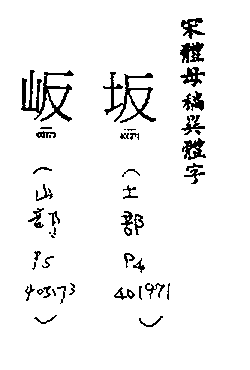 宋體母稿異體字
坂
(土部
P4
401971)
岅
(山部
P5
403173)